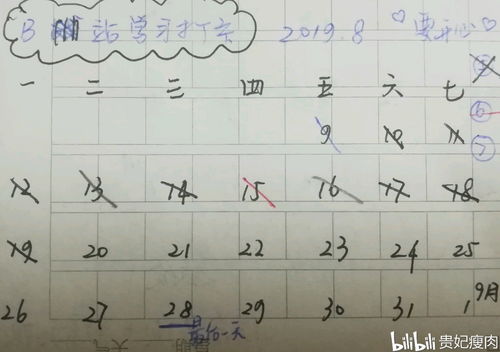 B站学习打卡 2019.8 ♡要开心♡
一 二 三 四 五 六 七
9 10 11 ⑥
12 13 14 15 16 17 18 ⑦
19 20 21 22 23 24 25
26 27 28 29 30 31 1 9月
最后一天
星期 天气
bilibili 贵妃瘦肉